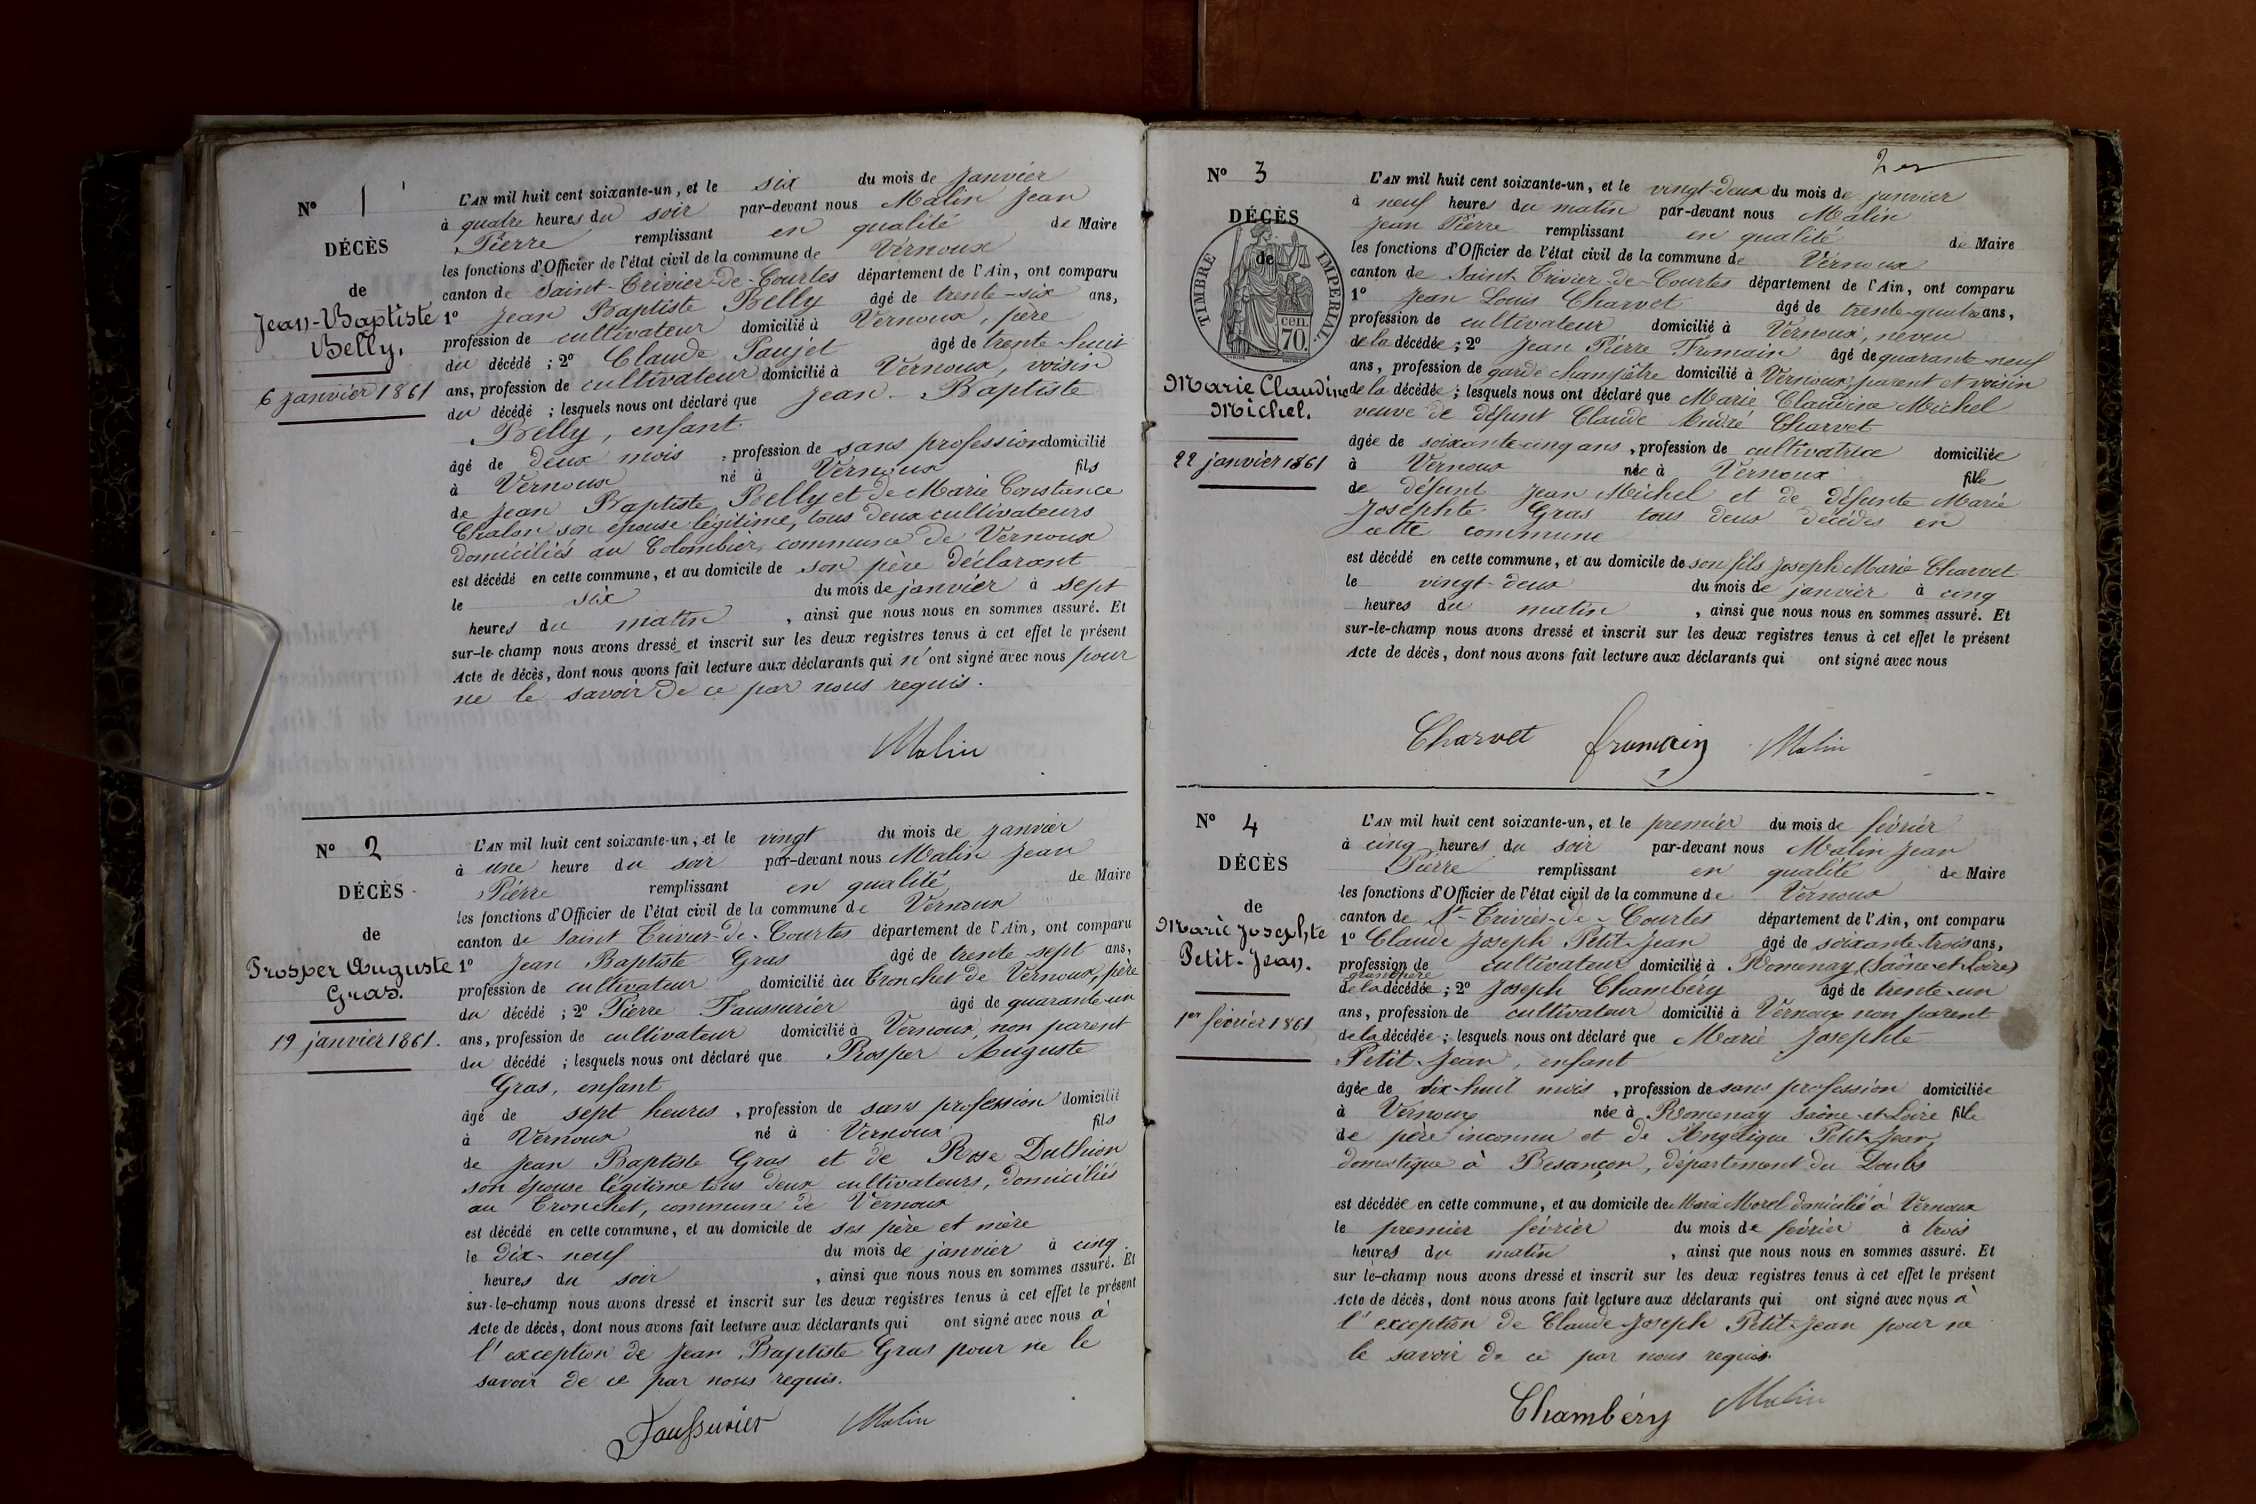 N° 1
DÉCÈS
de
Jean-Baptiste
Belly.
6 janvier 1861
L'AN mil huit cent soixante-un, et le six du mois de janvier
à quatre heures du soir par-devant nous Malin Jean
Pierre remplissant en qualité de Maire
les fonctions d'Officier de l'état civil de la commune de Vernoux
canton de Saint-Trivier-de-Courtes département de l'Ain, ont comparu
1° Jean Baptiste Belly âgé de trente-six ans,
profession de cultivateur domicilié à Vernoux, père
du décédé ; 2° Claude Paujet âgé de trente-huit
ans, profession de cultivateur domicilié à Vernoux, voisin
du décédé ; lesquels nous ont déclaré que Jean-Baptiste
Belly, enfant
âgé de deux mois , profession de sans profession domicilié
à Vernoux né à Vernoux fils
de Jean Baptiste Belly et de Marie Constance
Chalon son épouse légitime, tous deux cultivateurs
domiciliés au Colombier, commune de Vernoux
est décédé en cette commune, et au domicile de son père déclarant
le six du mois de janvier à sept
heures du matin , ainsi que nous nous en sommes assuré. Et
sur-le-champ nous avons dressé et inscrit sur les deux registres tenus à cet effet le présent
Acte de décès, dont nous avons fait lecture aux déclarants qui n'ont signé avec nous pour
ne le savoir de ce par nous requis.
Malin
N° 2
DÉCÈS
de
Prosper Auguste
Gras.
19 janvier 1861.
L'AN mil huit cent soixante-un, et le vingt du mois de janvier
à une heure du soir par-devant nous Malin Jean
Pierre remplissant en qualité de Maire
les fonctions d'Officier de l'état civil de la commune de Vernoux
canton de Saint Trivier-de-Courtes département de l'Ain, ont comparu
1° Jean Baptiste Gras âgé de trente sept ans,
profession de cultivateur domicilié au Tronchet de Vernoux, père
du décédé ; 2° Pierre Faussurier âgé de quarante-un
ans, profession de cultivateur domicilié à Vernoux, non parent
du décédé ; lesquels nous ont déclaré que Prosper Auguste
Gras, enfant
âgé de sept heures , profession de sans profession domicilié
à Vernoux né à Vernoux fils
de Jean Baptiste Gras et de Rose Duthion
son épouse légitime tous deux cultivateurs, domiciliés
au Tronchet, commune de Vernoux
est décédé en cette commune, et au domicile de ses père et mère
le dix-neuf du mois de janvier à cinq
heures du soir , ainsi que nous nous en sommes assuré. Et
sur-le-champ nous avons dressé et inscrit sur les deux registres tenus à cet effet le présent
Acte de décès, dont nous avons fait lecture aux déclarants qui ont signé avec nous à
l'exception de Jean Baptiste Gras pour ne le
savoir de ce par nous requis.
Faussurier Malin
N° 3
DÉCÈS
de
TIMBRE IMPÉRIAL
cen. 70.
Marie Claudine
Michel.
22 janvier 1861
L'AN mil huit cent soixante-un, et le vingt-deux du mois de janvier
à neuf heures du matin par-devant nous Malin
Jean Pierre remplissant en qualité de Maire
les fonctions d'Officier de l'état civil de la commune de Vernoux
canton de Saint-Trivier-de-Courtes département de l'Ain, ont comparu
1° Jean Louis Charvet âgé de trente-quatre ans,
profession de cultivateur domicilié à Vernoux, neveu
de la décédée ; 2° Jean Pierre Fromain âgé de quarante-neuf
ans, profession de garde champêtre domicilié à Vernoux, parent et voisin
de la décédée ; lesquels nous ont déclaré que Marie Claudine Michel
veuve de défunt Claude André Charvet
âgée de soixante-cinq ans , profession de cultivatrice domiciliée
à Vernoux née à Vernoux fille
de défunt Jean Michel et de défunte Marie
Josephte Gras tous deux décédés en
cette commune
est décédé en cette commune, et au domicile de son fils Joseph Marie Charvet
le vingt-deux du mois de janvier à cinq
heures du matin , ainsi que nous nous en sommes assuré. Et
sur-le-champ nous avons dressé et inscrit sur les deux registres tenus à cet effet le présent
Acte de décès, dont nous avons fait lecture aux déclarants qui ont signé avec nous
Charvet fromain Malin
N° 4
DÉCÈS
de
Marie Josephte
Petit-Jean.
1er février 1861
L'AN mil huit cent soixante-un, et le premier du mois de février
à cinq heures du soir par-devant nous Malin Jean
Pierre remplissant en qualité de Maire
les fonctions d'Officier de l'état civil de la commune de Vernoux
canton de St-Trivier-de-Courtes département de l'Ain, ont comparu
1° Claude Joseph Petit-Jean âgé de soixante-trois ans,
profession de cultivateur domicilié à Romenay (Saône-et-Loire)
grand père
de la décédée ; 2° Joseph Chambéry âgé de trente-un
ans, profession de cultivateur domicilié à Vernoux non parent
de la décédée ; lesquels nous ont déclaré que Marie Josephte
Petit-Jean, enfant
âgée de dix-huit mois , profession de sans profession domiciliée
à Vernoux née à Romenay Saône-et-Loire fille
de père inconnu et de Angélique Petit-Jean
domestique à Besançon, département du Doubs
est décédée en cette commune, et au domicile de Marie Morel domicilié à Vernoux
le premier février du mois de février à trois
heures du matin , ainsi que nous nous en sommes assuré. Et
sur le-champ nous avons dressé et inscrit sur les deux registres tenus à cet effet le présent
Acte de décès, dont nous avons fait lecture aux déclarants qui ont signé avec nous à
l'exception de Claude-Joseph Petit-Jean pour ne
le savoir de ce par nous requis.
Chambéry Malin